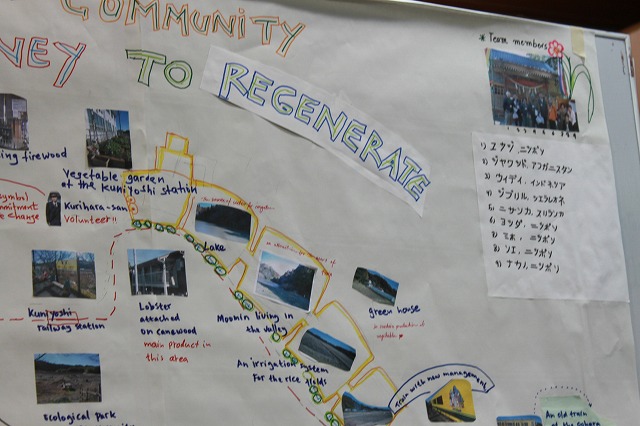 COMMUNITY
NEY TO REGENERATE
* Team members
ing firewood
Vegetable garden
of the Kuniyoshi station
symbol
Kurihara-san
volunteer!!
change
Lake
Kuniyoshi
railway station
Lobster
attached
on canewood
main product in
this area
Moomin living in
the valley
green house
An irrigation system
For the rice fields
Train with new management
Ecological park
An old train
1) エイジ、ニッポン
2) ジャワッド、アフガニスタン
3) ウィディ、インドネシア
4) ジブリル、シエラレオネ
5) ニサンカ、スリランカ
6) ヨシダ、ニッポン
7) ミホ、ニッポン
8) ソエ、ニッポン
9) ナカノ、ニッポン